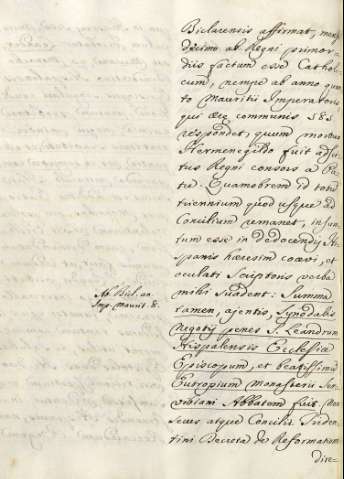 Biclarensis affirmat, men
decimo ab Regni primor-
diis factum esse Cathol
cum, nempe ab anno quin
to Mauritii Imperatoris
qui æræ communis 585
respondet, quum mortuo
Hermenegildo fuit adsci
tus Regni consors a Pa
tre. Quamobrem id totum
triennium quod usque ad
Concilium remanet, insum
tum esse in dedocendis His
panis hæresim coævi, et
oculati Scriptoris verba
mihi suadent: Summa
tamen, ajentis, Synodalis
negotij penes S. Leandrum
Hispalensis Ecclesiæ
Episcopum, et beatissimum
Eutropium monasterii Ser
vitani Abbatem fuit.
seus atque Concilii Triden
tini Decreta de Reformatione
Ab. Bicl. an.
Imp. Maurit. 8.